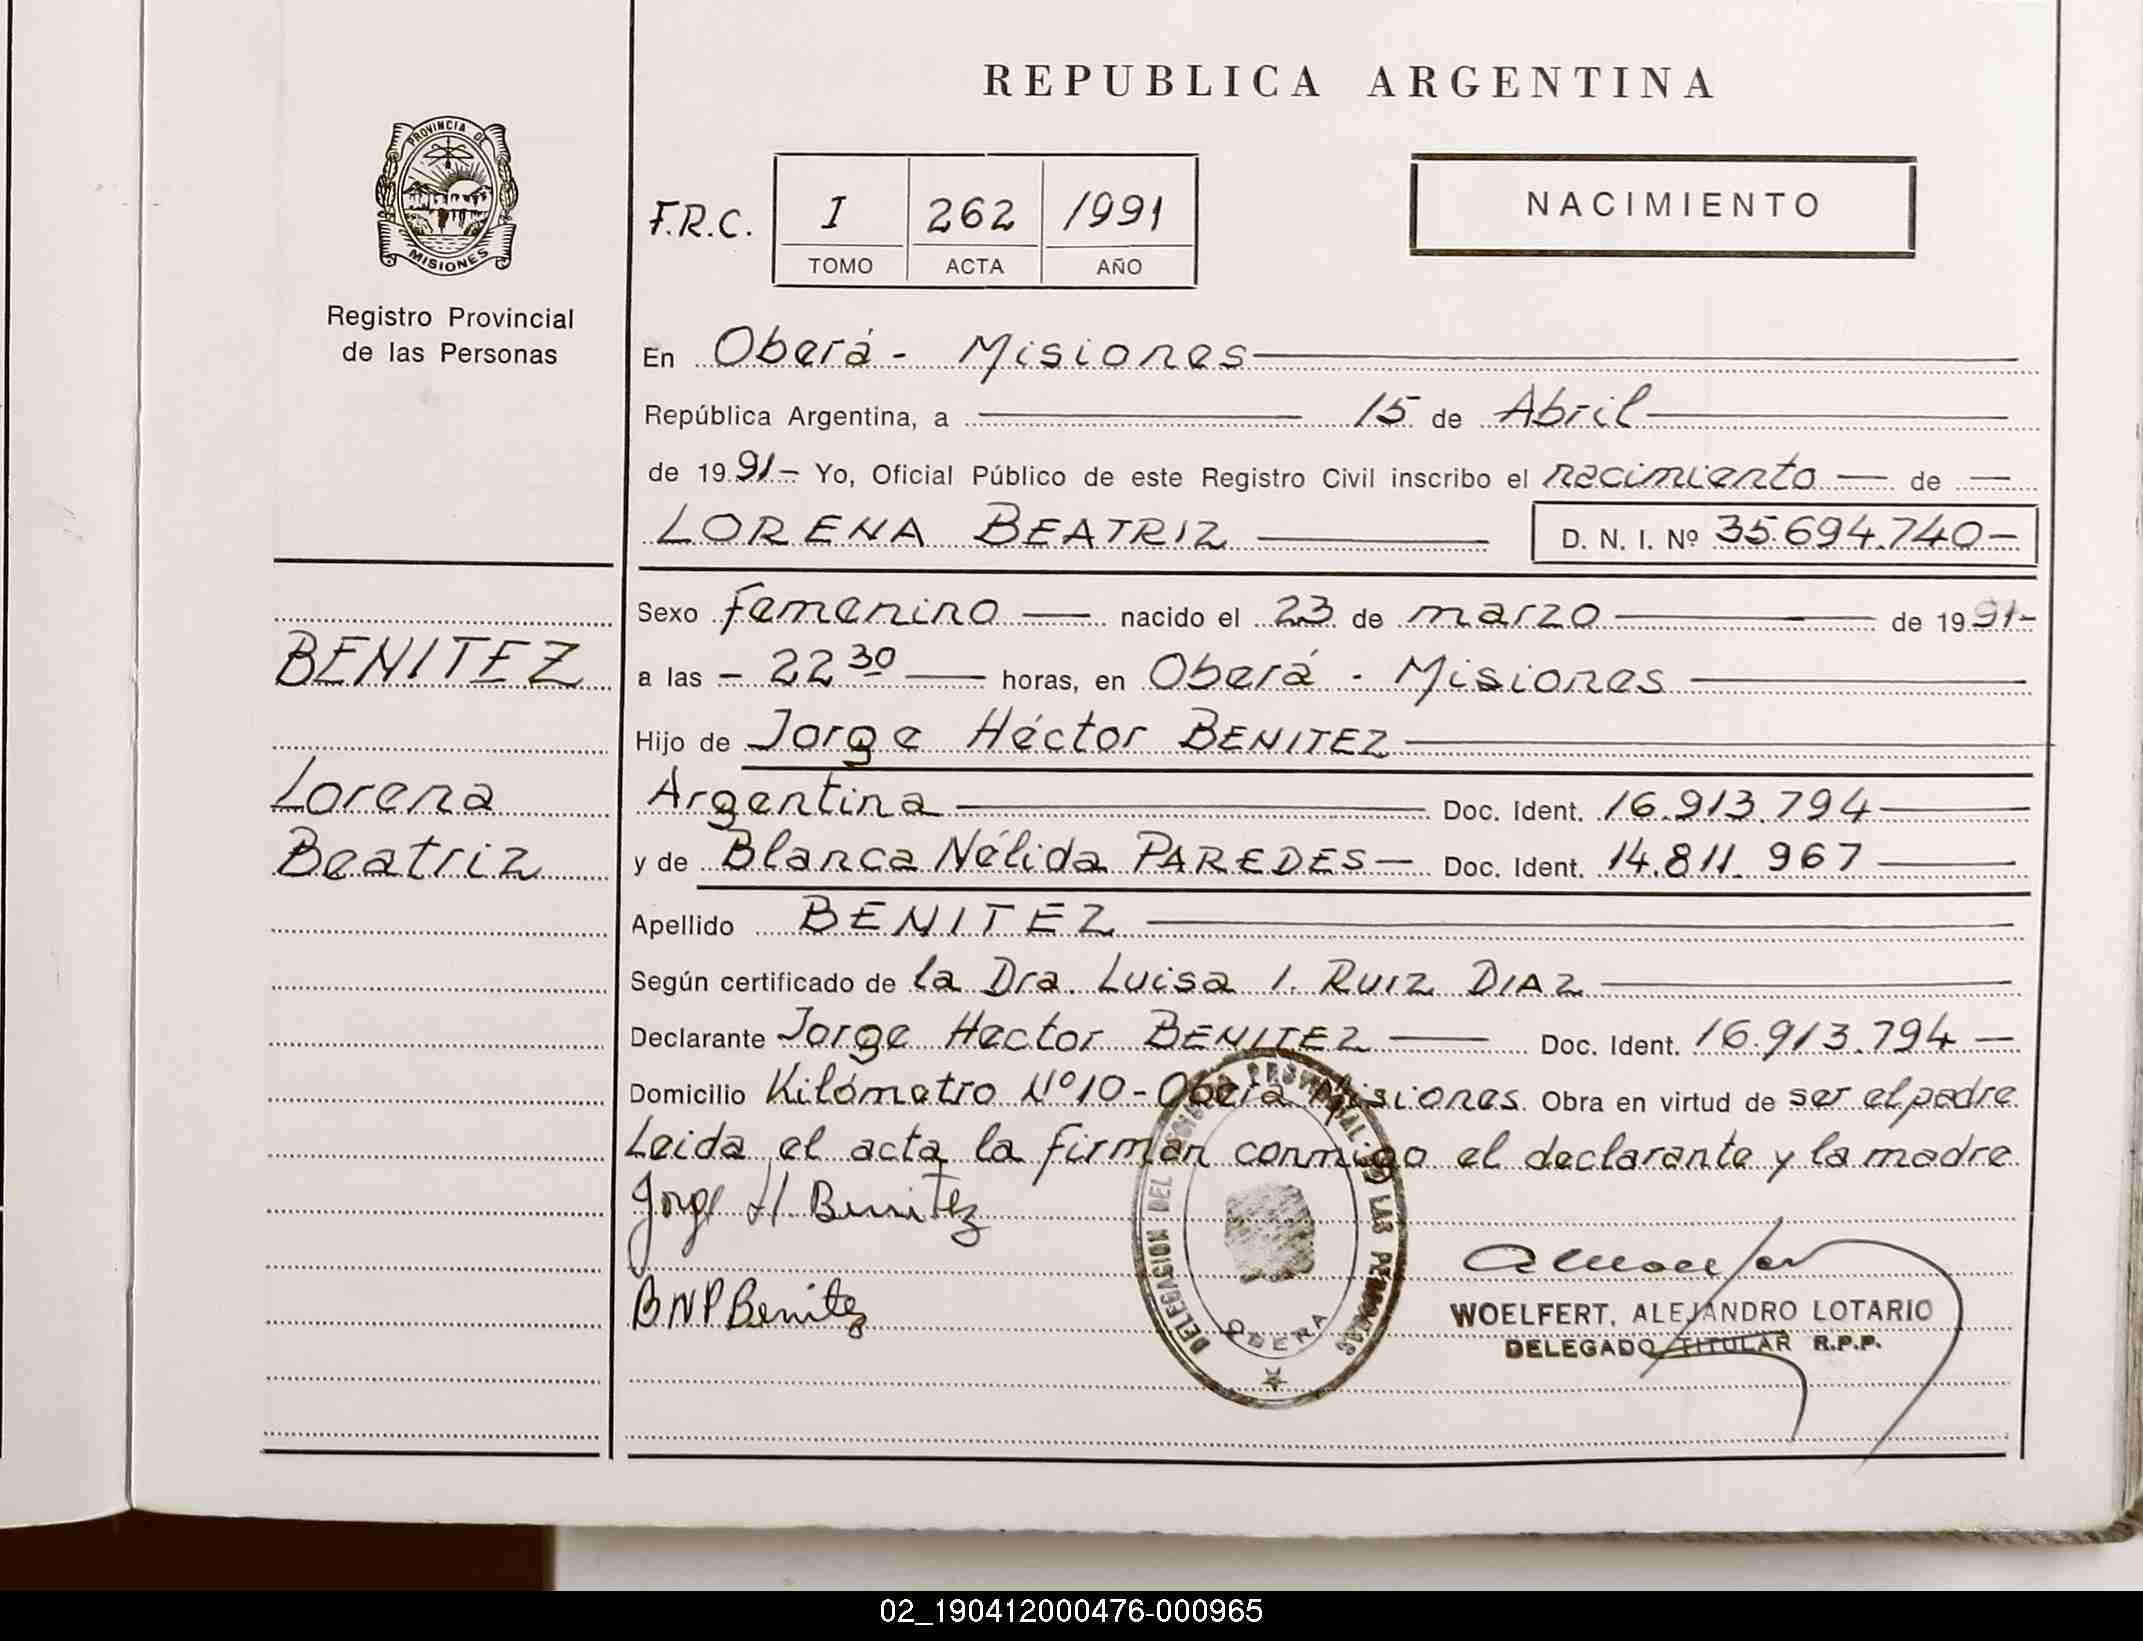 REPUBLICA ARGENTINA
PROVINCIA DE
MISIONES
Registro Provincial
de las Personas
F.R.C. I 262 1991
TOMO ACTA AÑO
NACIMIENTO
En Oberá - Misiones
República Argentina, a 15 de Abril
de 1991- Yo, Oficial Público de este Registro Civil inscribo el nacimiento de
LORENA BEATRIZ D. N. I. Nº 35.694.740-
BENITEZ
Lorena
Beatriz
Sexo femenino nacido el 23 de marzo de 1991-
a las - 22 30 horas, en Oberá - Misiones
Hijo de Jorge Héctor BENITEZ
Argentina Doc. Ident. 16.913.794
y de Blanca Nélida PAREDES Doc. Ident. 14.811.967
Apellido BENITEZ
Según certificado de la Dra. Luisa I. RUIZ DIAZ
Declarante Jorge Hector BENITEZ Doc. Ident. 16.913.794
Domicilio Kilómetro Nº 10 - Oberá Misiones Obra en virtud de ser el padre
Leida el acta la firman conmigo el declarante y la madre
Jorge H. Benitez
BNPBenitez
DELEGACION DEL REGISTRO PROVINCIAL DE LAS PERSONAS
OBERA
WOELFERT, ALEJANDRO LOTARIO
DELEGADO TITULAR R.P.P.
02_190412000476-000965